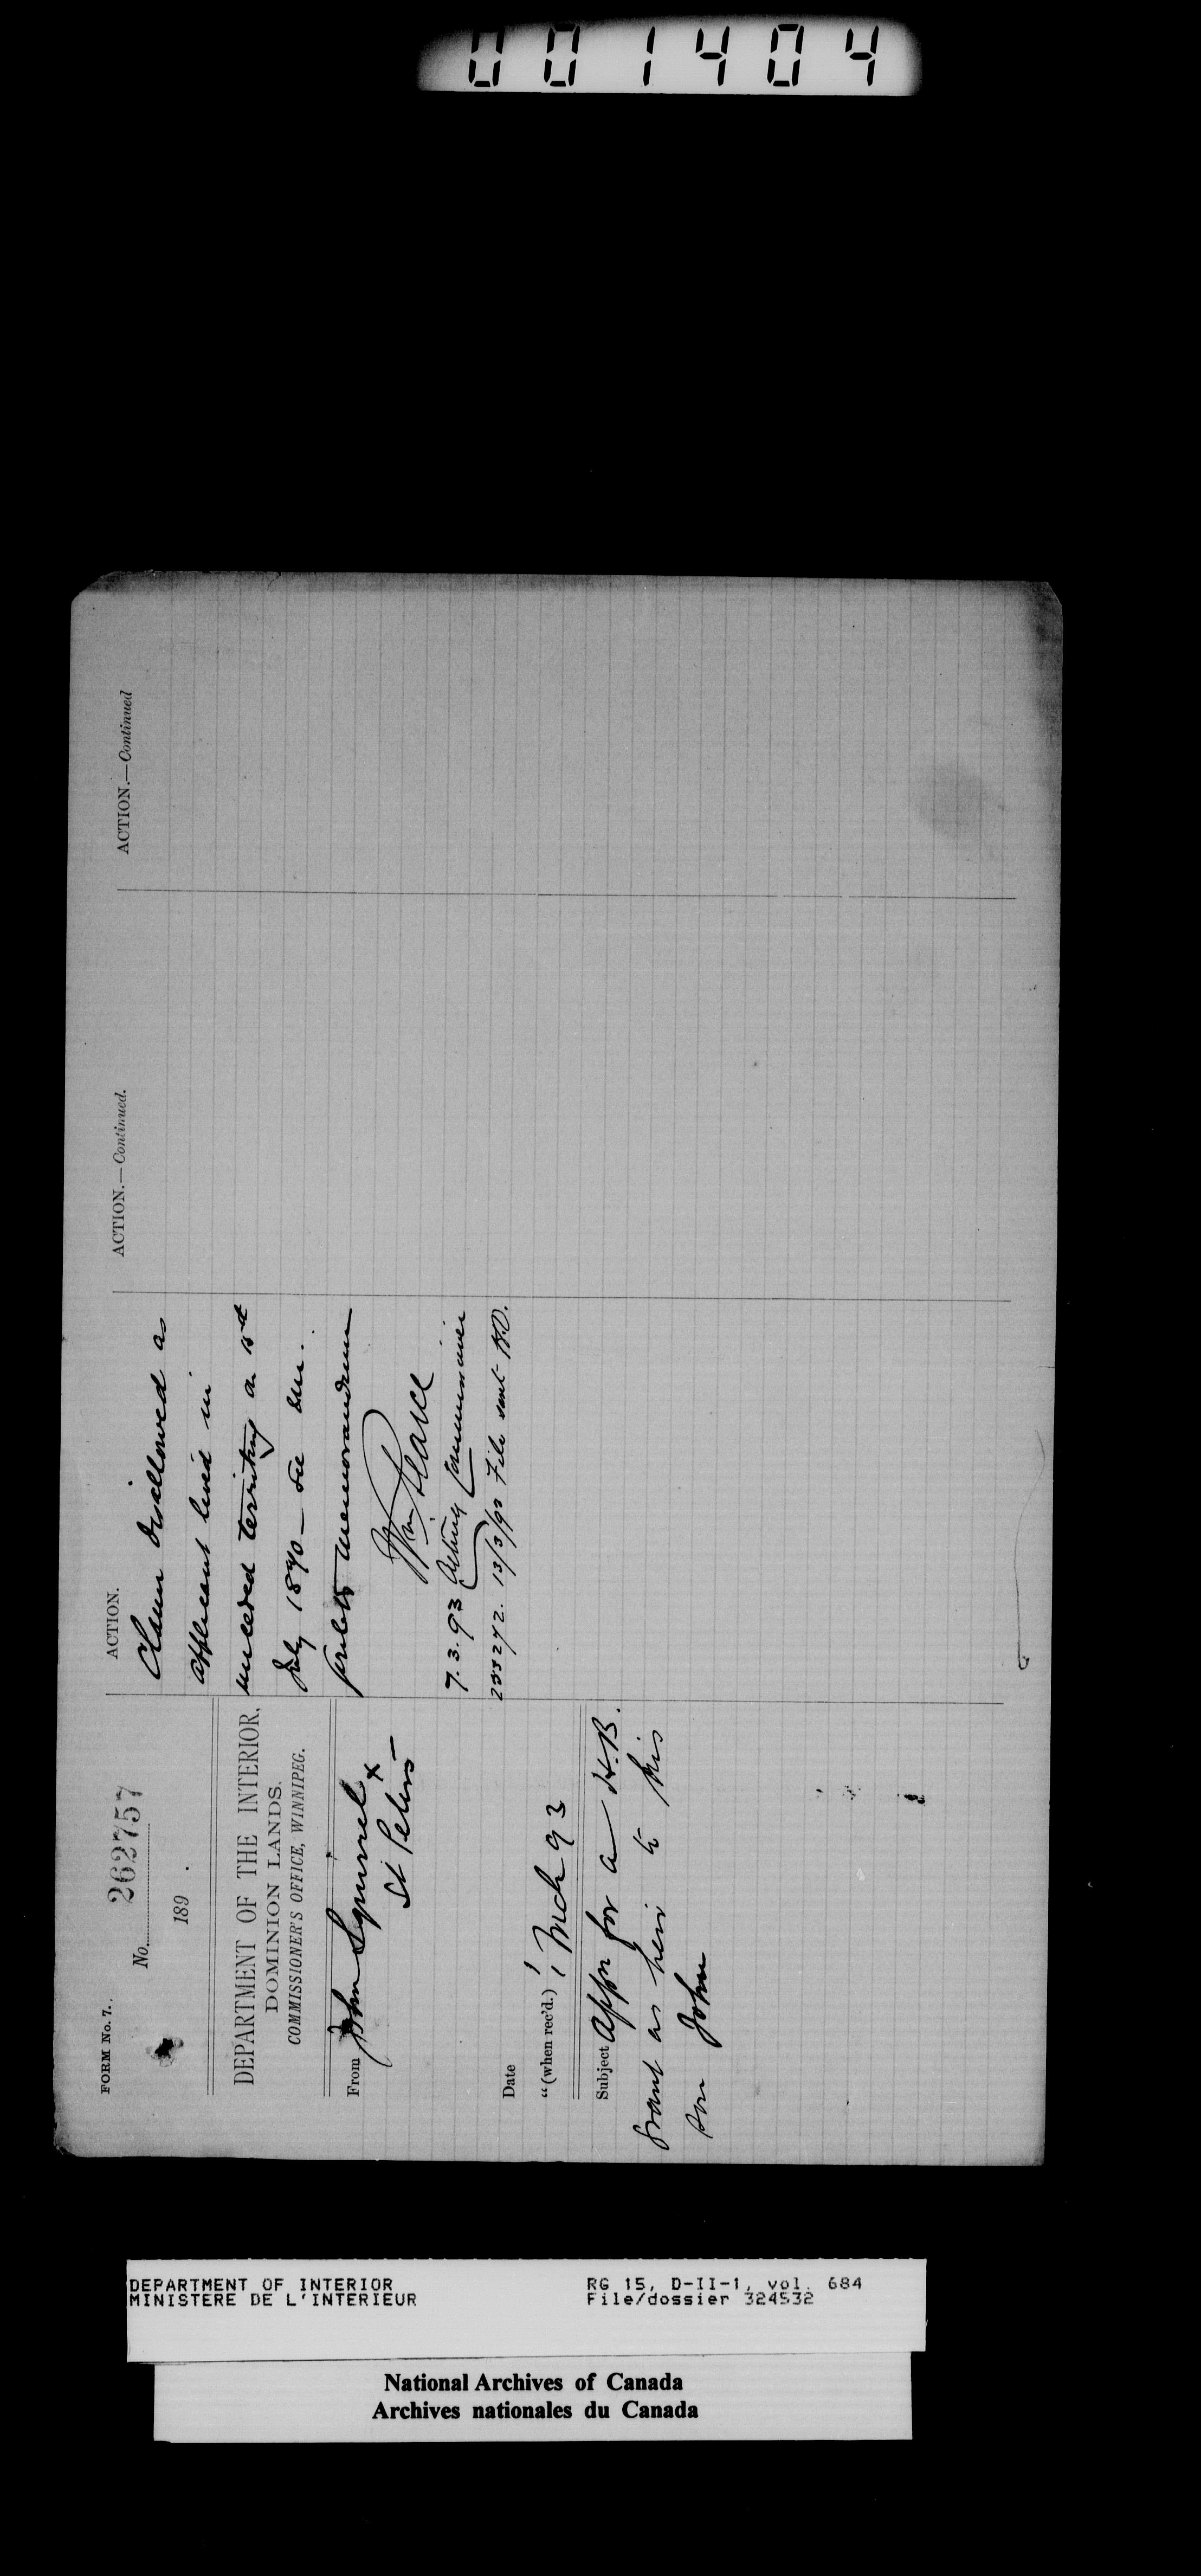 001404
FORM No. 7.
No. 262757
189 .
DEPARTMENT OF THE INTERIOR,
DOMINION LANDS.
COMMISSIONER'S OFFICE, WINNIPEG.
From John Squirrel x
St Peters
Date
" (when rec'd.) 1 Mch 93
Subject Appn for a H.B.
Grant as heir to his
son John
ACTION.
Claim disallowed as
applicant lived in
unceded territory on 1st
July 1870 — see
memorandum
Wm Pearce
7.3.93 Acting Commissioner
13/3/93 File sent
ACTION.—Continued.
ACTION.—Continued
DEPARTMENT OF INTERIOR
MINISTERE DE L'INTERIEUR
RG 15, D-II-1, vol. 684
File/dossier 324532
National Archives of Canada
Archives nationales du Canada